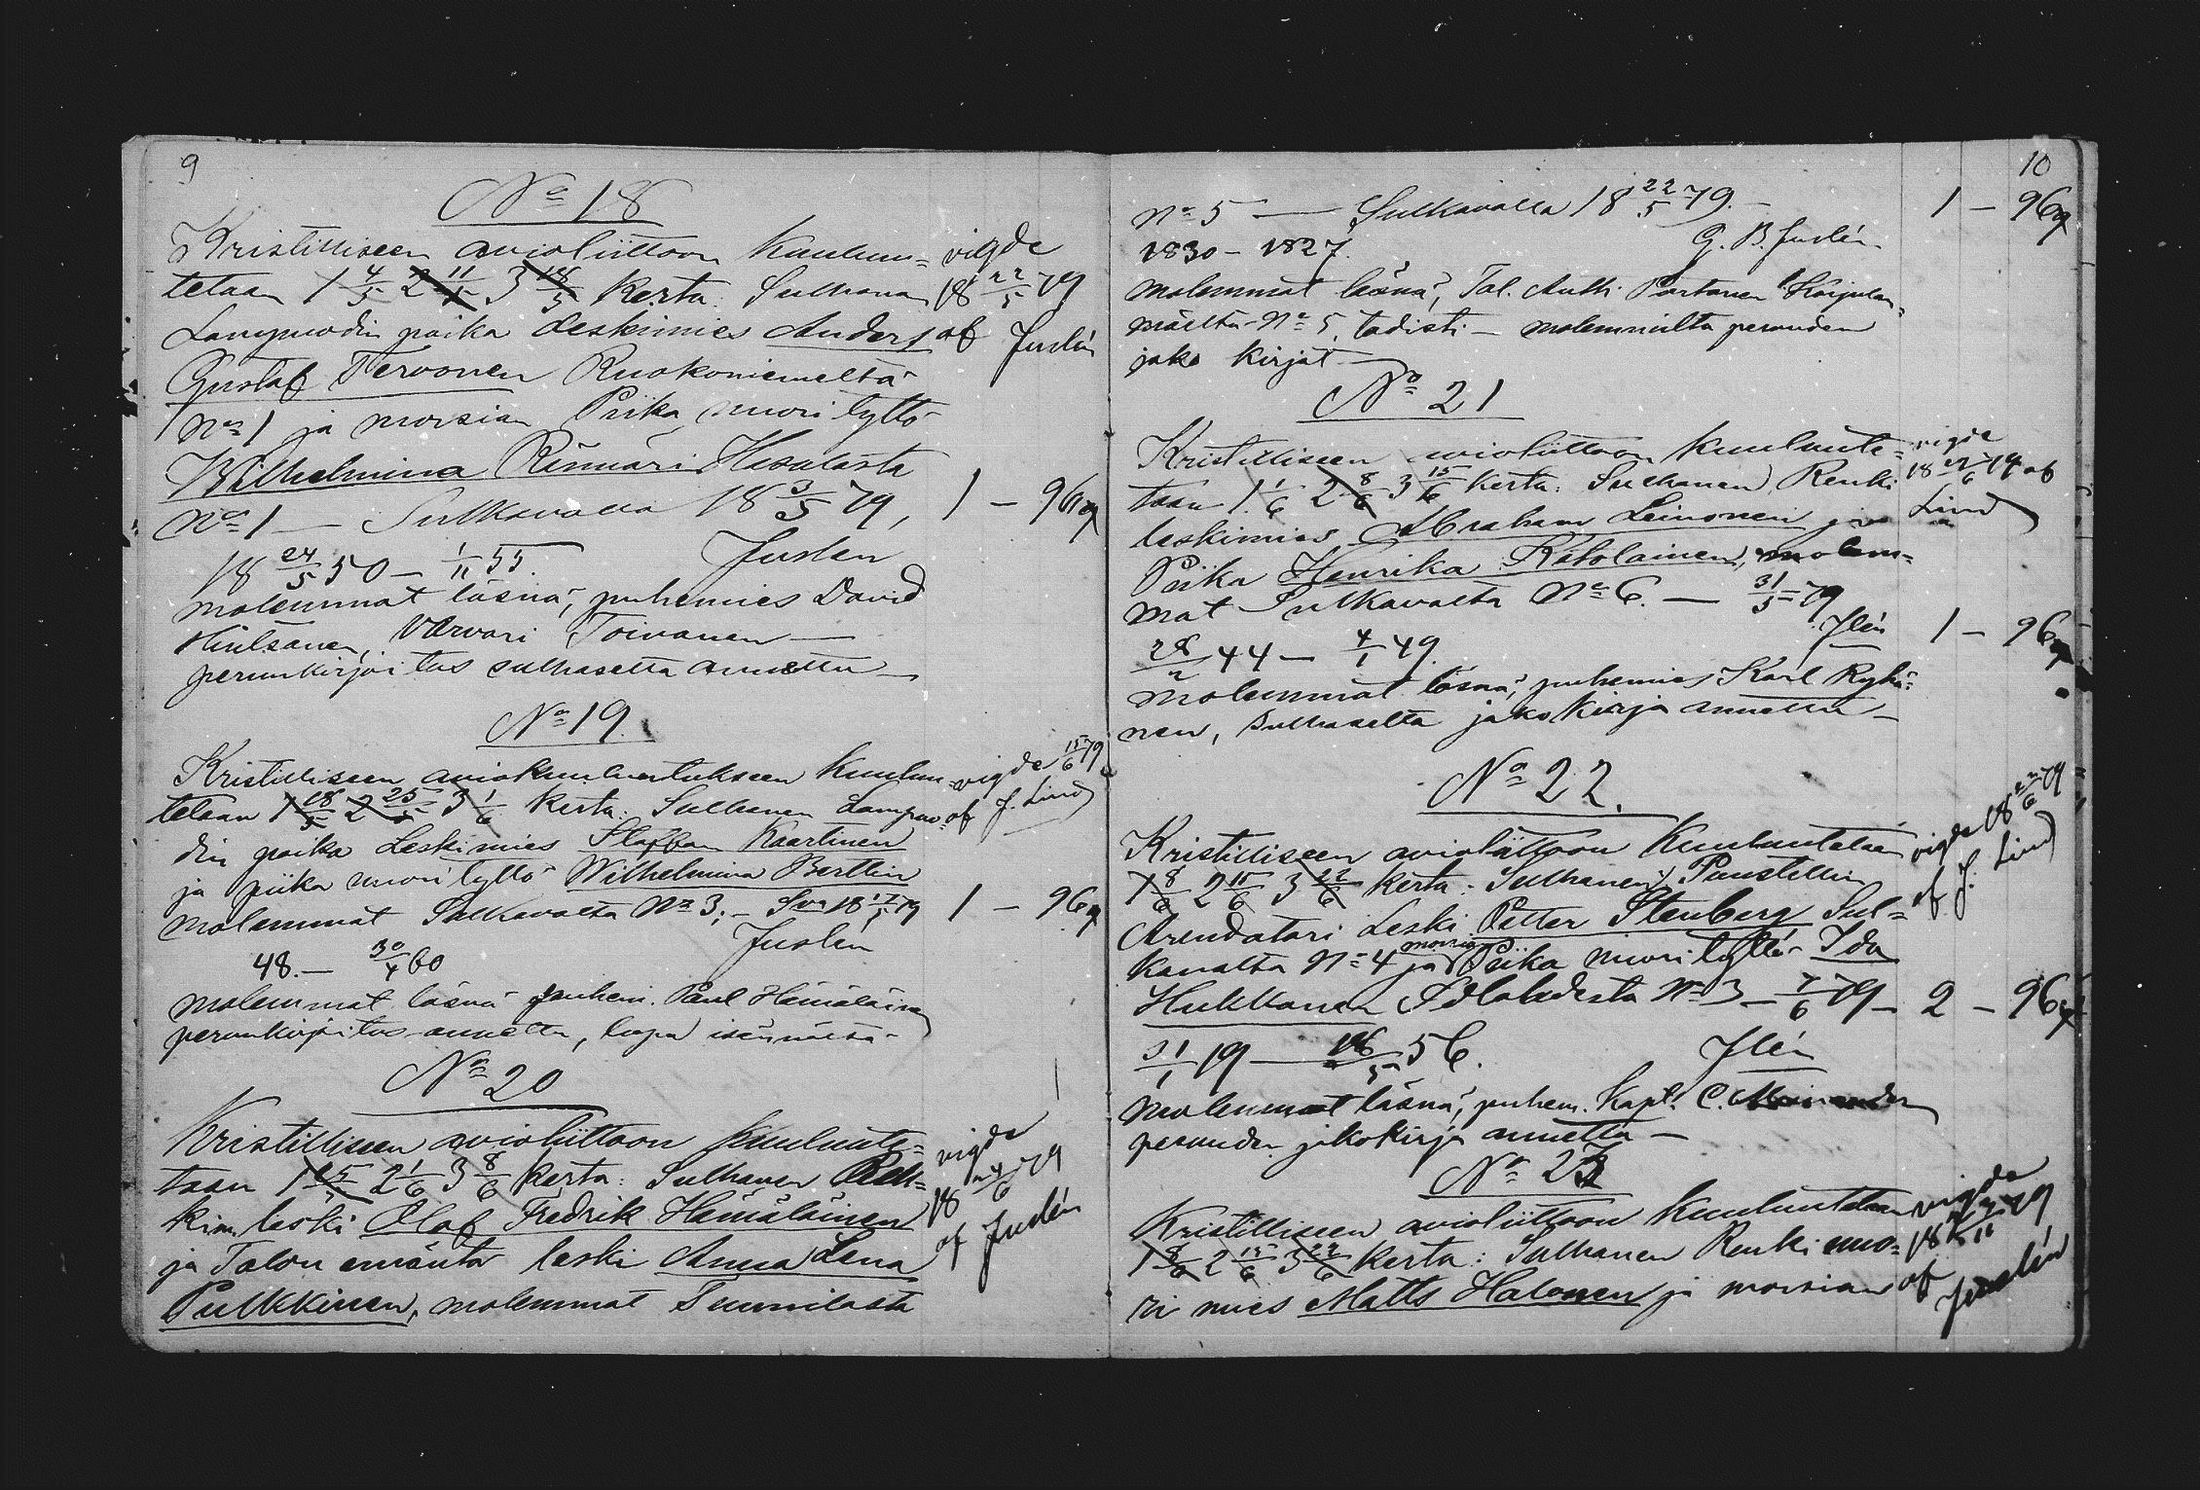 9
No 18
Kristilliseen avioliittoon kuulu=
tetaan 1 4/5 2 11/5 3 18/5 kerta: Sulhanen
Lampuodin poika Leskimies Anders
Gustaf Tervonen Ruokoniemeltä
No 1 ja morsian Piika, nuori tyttö
Wilhelmina Rinnari Hasulasta
No 1 — Sulkavalla 18 3/5 79,
1 — 96
Juslen
18 24/5 50 — 1/11 55.
molemmat läsnä, puhemies David
Hiltsanen, Värvari Toivanen —
perunkirjoitus sulhaselta annettu —
vigde
18 22/5 79
af Juslén
No 19.
Kristilliseen aviokuulutukseen kuulu
tetaan 1 18/5 2 25/5 3 1/6 kerta: Sulhanen Lampuo=
din poika Leskimies Staffan Kaartinen
ja piika nuori tyttö Wilhelmina Berttin
molemmat Sulkavalta No 3; — Sva 18 17/5 79
1 — 96
Juslén
48. — 30/4 60
molemmat läsnä puhem. Paul Hämäläinen
perunkirjoitus annettu, lupa isännältä
vigde 15/6 79
af J. Lind
No 20
Kristilliseen avioliittoon kuulute=
taan 1 25/5 2 1/6 3 8/6 kerta: Sulhanen
leski Olof Fredrik Hämäläinen
ja Talon emäntä leski Anna Lena
Pulkkinen, molemmat Tunnilasta
vigde
18 24/6 79
af Juslén
10
No 5 — Sulkavalla 18 22/5 79. —
1 — 96
1830 — 1827.
G. B. Juslén.
molemmat läsnä, Tal. Antti Partanen Karjulan=
mäeltä No 5, todisti — molemmilta perunden
jako kirjat —
No 21
Kristilliseen avioliittoon kuulute=
taan 1 1/6 2 8/6 3 15/6 kerta: Sulhanen, Renki
leskimies Abraham Leinonen ja
Piika Henrika Kätolainen, molem=
mat Sulkavalta No 6. — 31/5 79
Jlén
1 — 96
44 — 4/1 49.
molemmat läsnä, puhemies Karl Ryhä=
nen, sulhaselta jakokirja annettu —
vigde
18 22/6 79 af
Lind
No 22.
Kristilliseen avioliittoon kuulutetaan
1 8/6 2 15/6 3 22/6 kerta: Sulhanen, Puustellin
Arendatori Leski Petter Stenberg Sul=
kavalta No 4 ja morsian Piika nuori tyttö Ida
Hukkanen Idlahdesta No 3 — 7/6 79 —
2 — 96
31/1 19 — 16/5 56.
Jlén
molemmat läsnä, puhem. Kapl. C.
perunden jakokirja annettu —
vigde 18 22/6 79
af J. Lind
No 23
Kristilliseen avioliittoon kuulutetaan
1 8/6 2 15/6 3 22/6 kerta: Sulhanen Renki nuo=
ri mies Matts Halonen ja morsian
vigde
18 79
af
Juslén